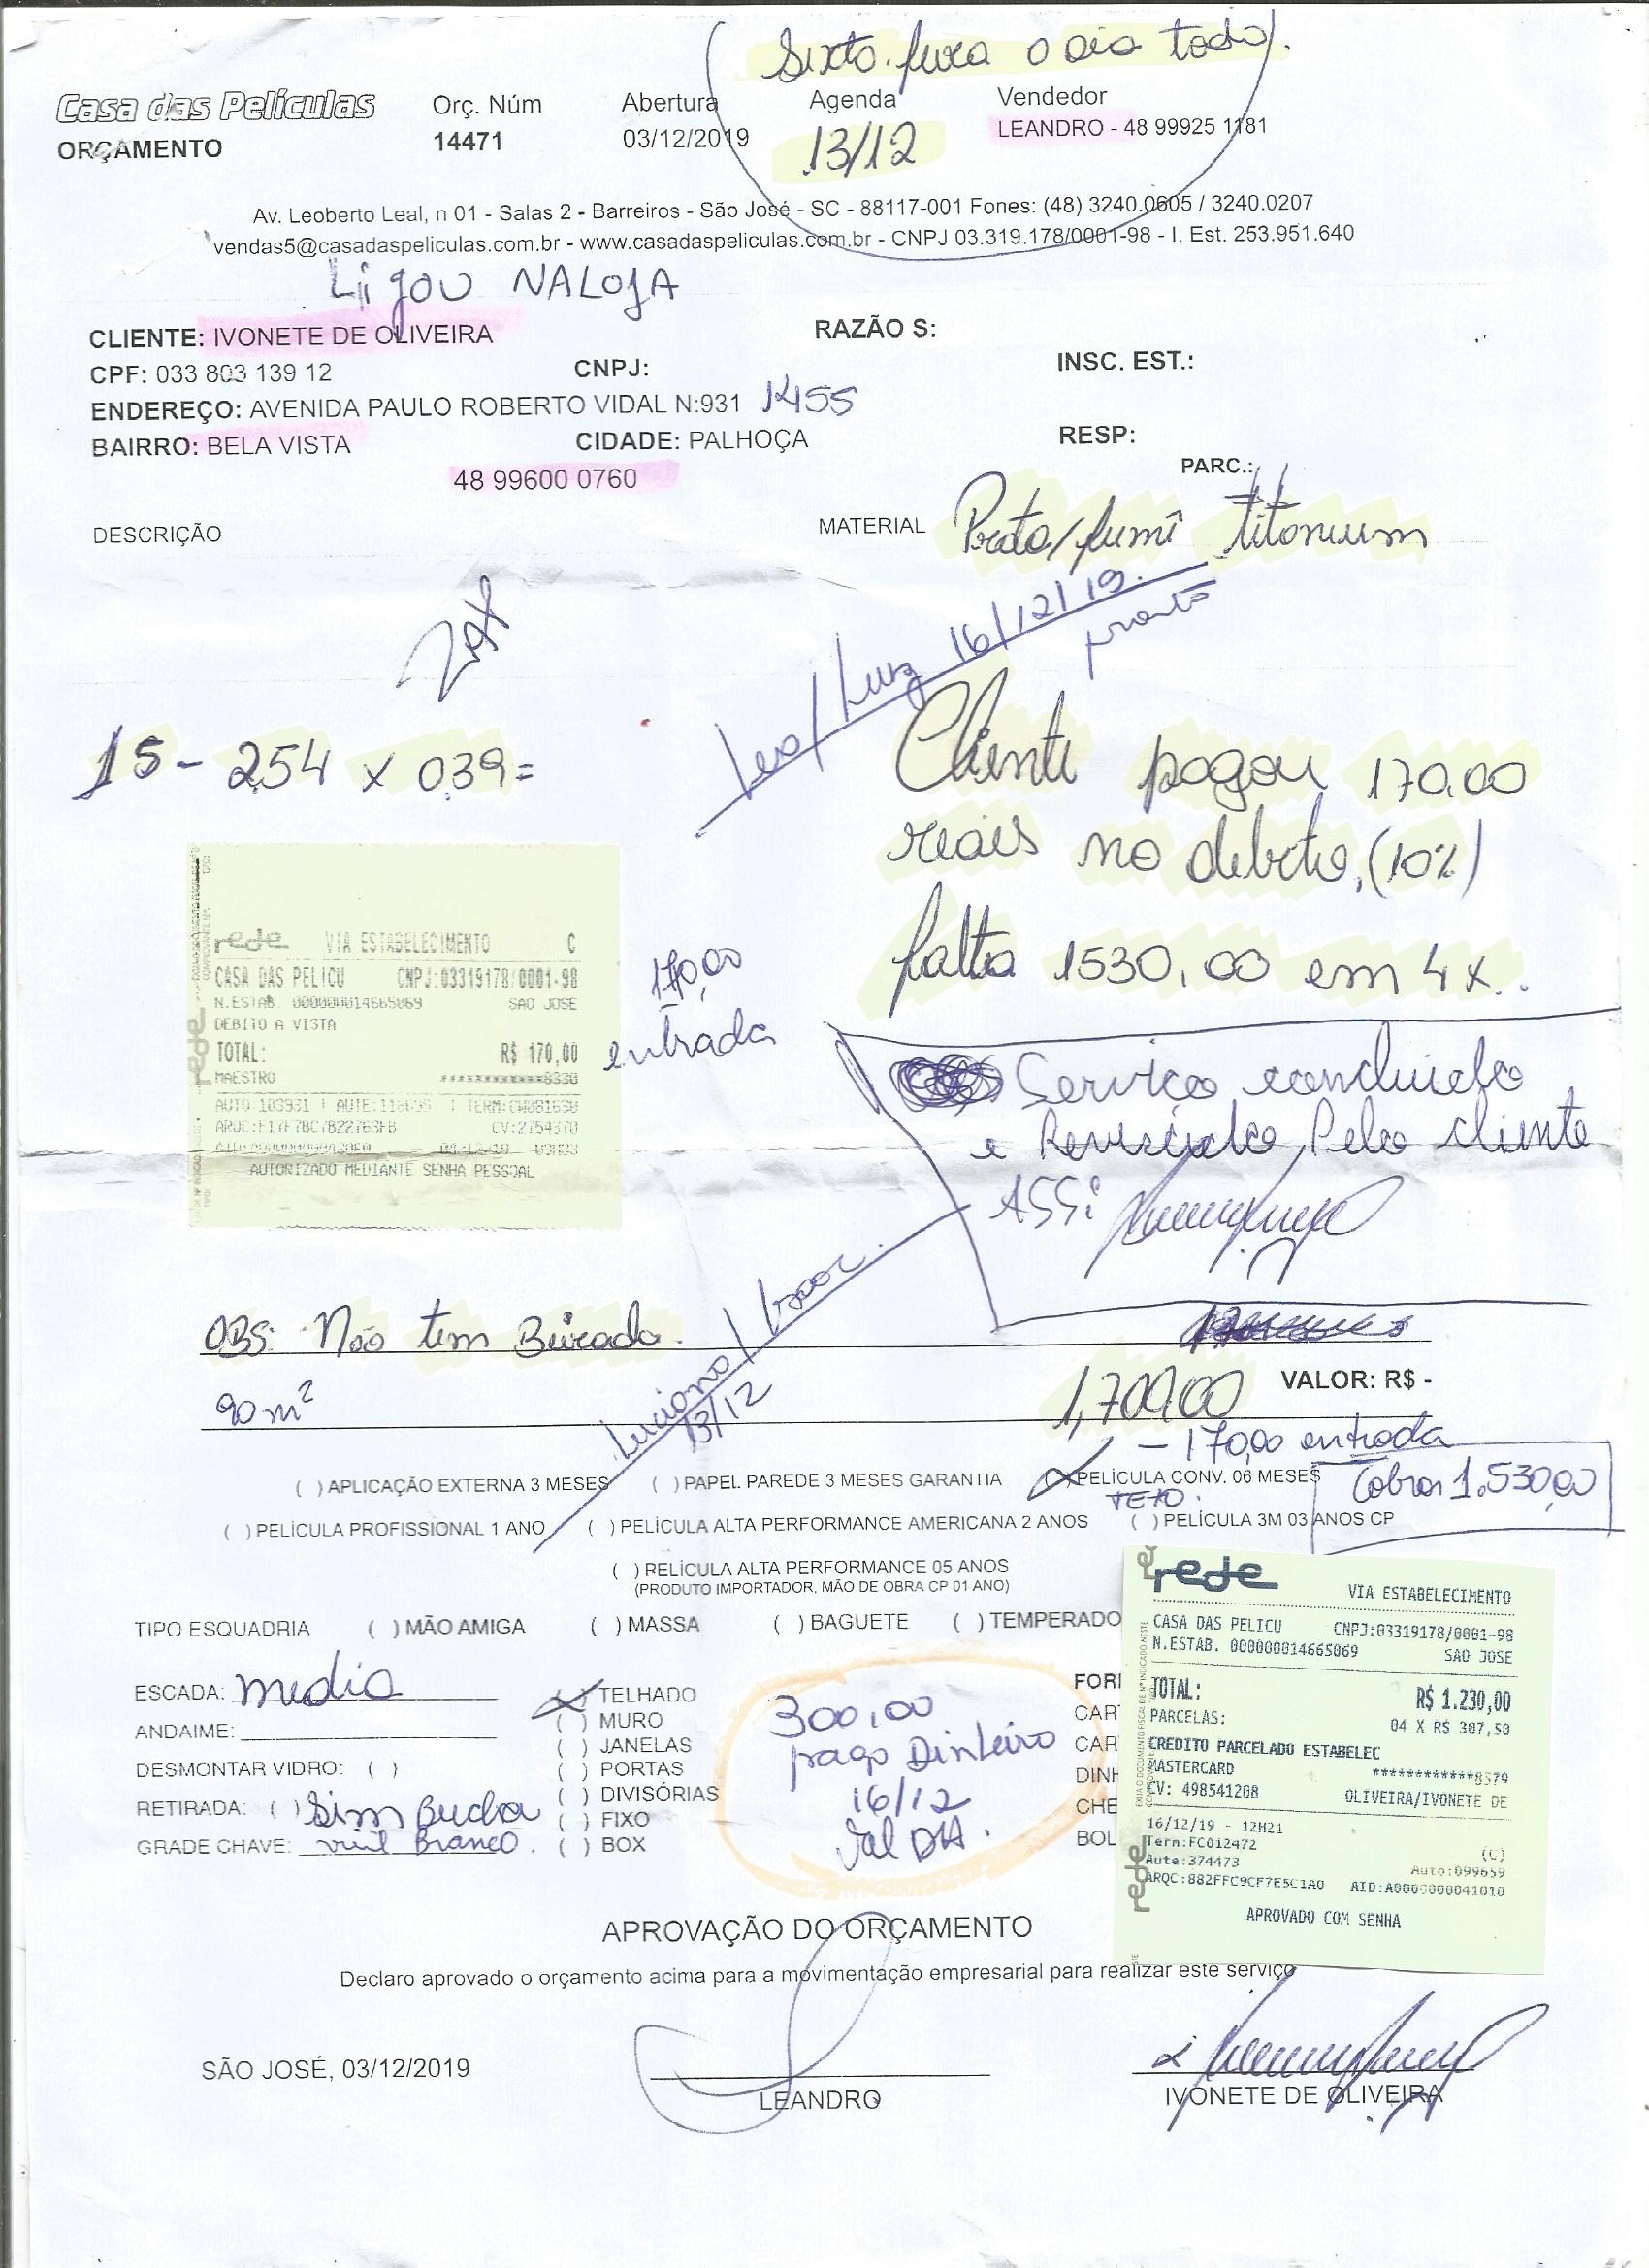 (Sixta. feira o dia todo).
Casa das Películas
ORÇAMENTO
Orç. Núm
14471
Abertura
03/12/2019
Agenda
13/12
Vendedor
LEANDRO - 48 99925 1181
Av. Leoberto Leal, n 01 - Salas 2 - Barreiros - São José - SC - 88117-001 Fones: (48) 3240.0605 / 3240.0207
vendas5@casadaspeliculas.com.br - www.casadaspeliculas.com.br - CNPJ 03.319.178/0001-98 - I. Est. 253.951.640
Ligou NA LOJA
CLIENTE: IVONETE DE OLIVEIRA
RAZÃO S:
CPF: 033 803 139 12
CNPJ:
INSC. EST.:
ENDEREÇO: AVENIDA PAULO ROBERTO VIDAL N:931 1455
BAIRRO: BELA VISTA
CIDADE: PALHOÇA
RESP:
48 99600 0760
PARC.:
DESCRIÇÃO
MATERIAL Preto/fumê titanium
Leo/Luiz 16/12/19.
pronto
15 - 2,54 x 0,39 =
Cliente pagou 170,00
reais no debito, (10%)
falta 1530,00 em 4x..
rede VIA ESTABELECIMENTO C
CASA DAS PELICU CNPJ:03319178/0001-98
N.ESTAB. 000000014665069 SAO JOSE
DEBITO A VISTA
TOTAL: R$ 170,00
MAESTRO ************8330
CV:2754370
AUTORIZADO MEDIANTE SENHA PESSOAL
170,00
entrada
Serviço concluido
e Revisado Pelo cliente
ASSi
OBS: Não tem Beirado.
90 m²
Luciano/Isaac.
13/12
1,700,00
VALOR: R$ -
- 170,00 entrada
Cobrar 1.530,00
( ) APLICAÇÃO EXTERNA 3 MESES
( ) PAPEL PAREDE 3 MESES GARANTIA
(X) PELÍCULA CONV. 06 MESES
TETO.
( ) PELÍCULA PROFISSIONAL 1 ANO
( ) PELÍCULA ALTA PERFORMANCE AMERICANA 2 ANOS
( ) PELÍCULA 3M 03 ANOS CP
( ) RELÍCULA ALTA PERFORMANCE 05 ANOS
(PRODUTO IMPORTADOR, MÃO DE OBRA CP 01 ANO)
TIPO ESQUADRIA ( ) MÃO AMIGA ( ) MASSA ( ) BAGUETE ( ) TEMPERADO
ESCADA: media
ANDAIME:
DESMONTAR VIDRO: ( )
RETIRADA: ( ) Sim Bucha
GRADE CHAVE: Branco.
(X) TELHADO
( ) MURO
( ) JANELAS
( ) PORTAS
( ) DIVISÓRIAS
( ) FIXO
( ) BOX
300,00
pago Dinheiro
16/12
Val DIA.
FORI
CAR
CAR
DINH
CHE
BOL
rede
VIA ESTABELECIMENTO
CASA DAS PELICU CNPJ:03319178/0001-98
N.ESTAB. 000000014665069 SAO JOSE
TOTAL: R$ 1.230,00
PARCELAS: 04 X R$ 307,50
CREDITO PARCELADO ESTABELEC
MASTERCARD ************8579
CV: 498541208 OLIVEIRA/IVONETE DE
16/12/19 - 12H21
Term:FC012472 (C)
Aute:374473 Auto:099659
ARQC:882FFC9CF7E5C1A0 AID:A0000000041010
APROVADO COM SENHA
APROVAÇÃO DO ORÇAMENTO
Declaro aprovado o orçamento acima para a movimentação empresarial para realizar este serviço
SÃO JOSÉ, 03/12/2019
LEANDRO
IVONETE DE OLIVEIRA